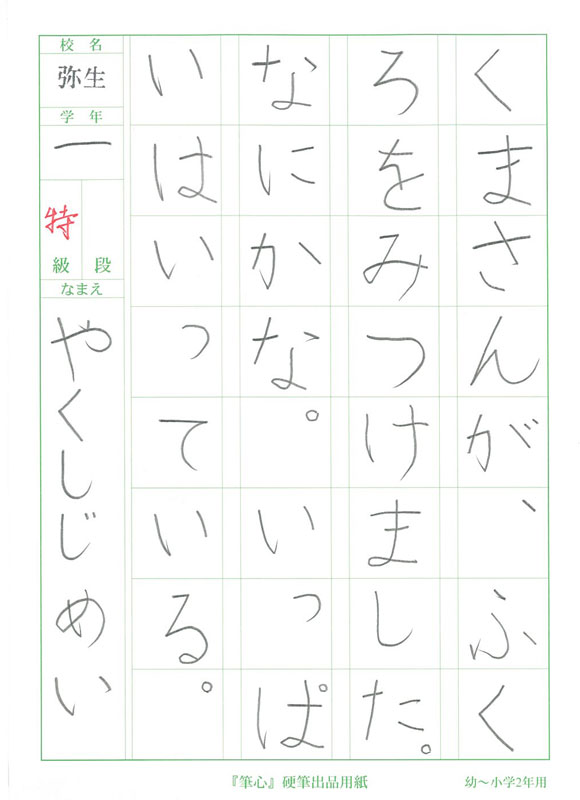 くまさんが、ふく
ろをみつけました。
なにかな。いっぱ
いはいっている。
校名
弥生
学年
一
特
級 段
なまえ
やくしじ めい
『筆心』硬筆出品用紙
幼～小学2年用